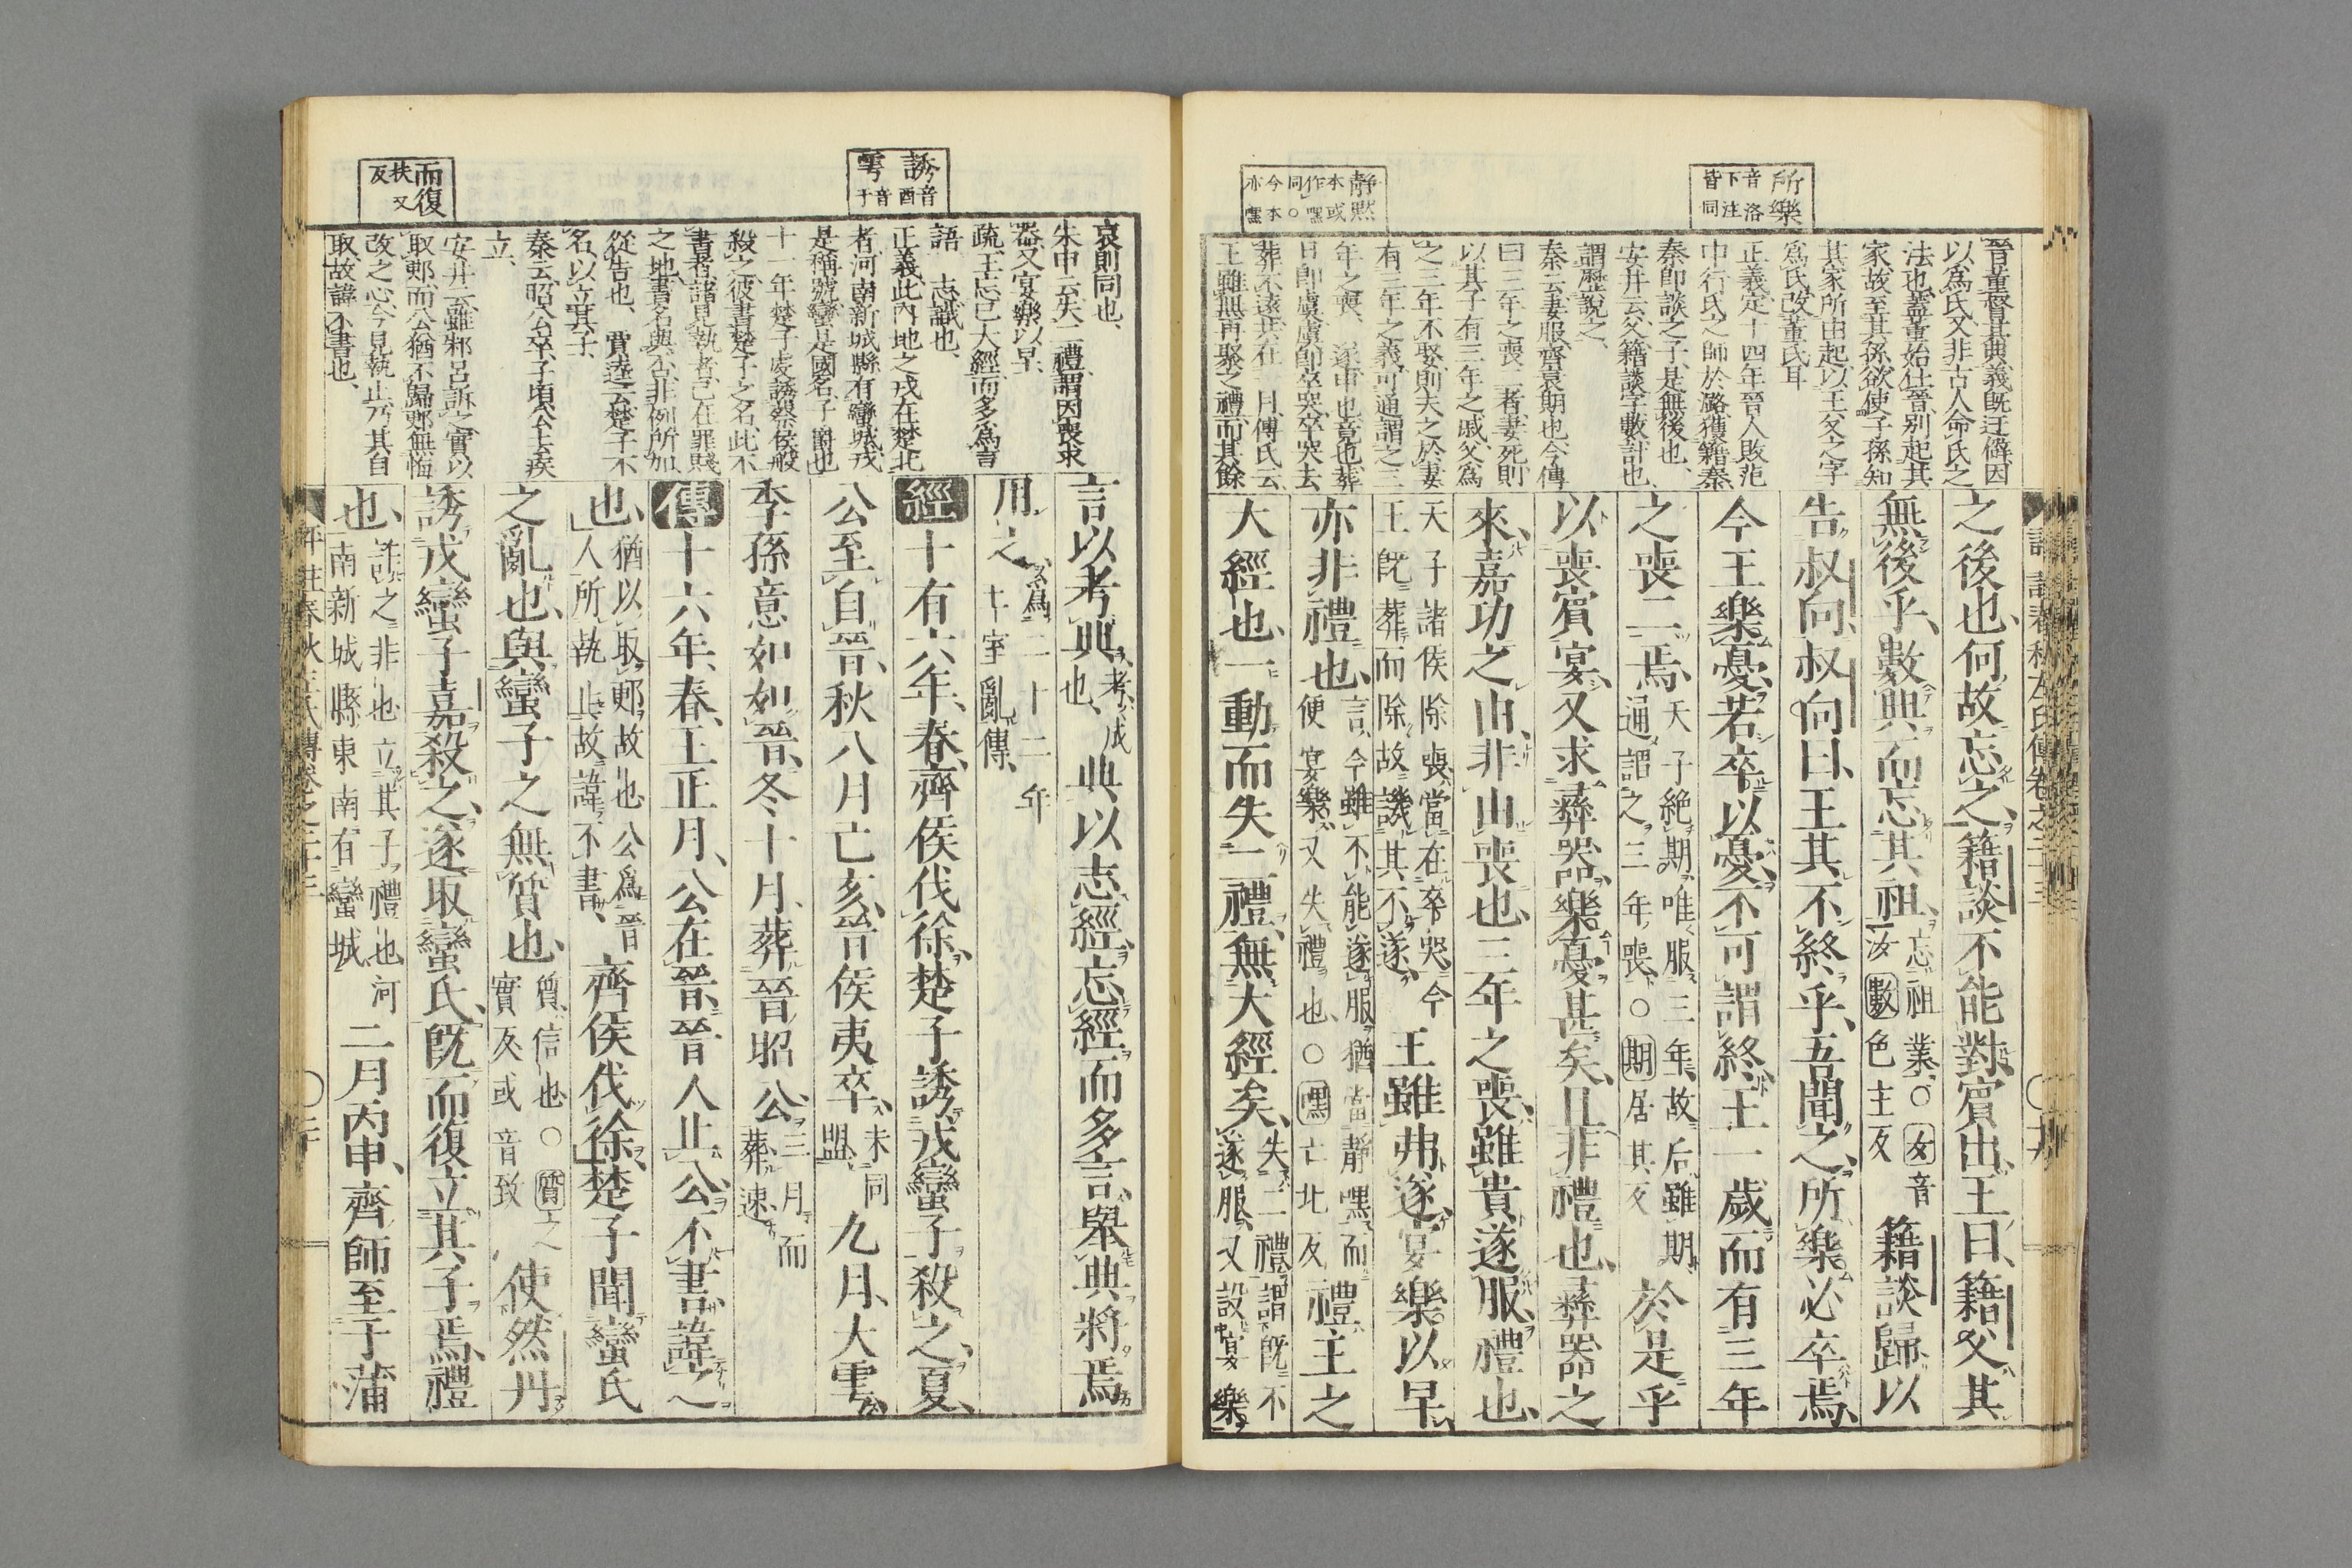 所樂
音洛
下注
皆同
靜默
本或
作嘿
同○
今本
亦嘿
晉董督其典義既迂僻因
以爲氏又非古人命氏之
法也蓋董始仕晉別起其
家故至其孫欲使子孫知
其家所由起以王父之字
爲氏改董氏耳
正義定十四年晉人敗范
中行氏之師於潞獲籍秦
秦即談之子是無後也
安井云父籍談字數計也
謂歷說之
秦云妻服齊衰期也今傳
曰三年之喪二者妻死則
以其子有三年之戚父爲
之三年不娶則夫之於妻
有三年之義可通謂之三
年之喪　遂申也竟也葬
日即虞虞即卒哭卒哭去
葬不遠共在一月傅氏云
王雖無再聚之禮而其餘
之後也何故忘之籍談不能對賓出王曰籍父其
無後乎數典而忘其祖
忘祖業○女音
汝數色主反
籍談歸以
告叔向叔向曰王其不終乎吾聞之所樂必卒焉
今王樂憂若卒以憂不可謂終王一歲而有三年
之喪二焉
天子絶期唯服三年故后雖期
通謂之三年喪○期居其反
於是乎
以喪賓宴又求彝器樂憂甚矣且非禮也彝器之
來嘉功之由非由喪也三年之喪雖貴遂服禮也
天子諸侯除喪當在卒哭今
王既葬而除故譏其不遂
王雖弗遂宴樂以早
亦非禮也
言今雖不能遂服猶當靜嘿而
便宴樂又失禮也○嘿亡北反
禮王之
大經也一動而失二禮無大經矣
失二禮謂既不
遂服又設宴樂
誘音酉
雩音于
而復
扶又
反
哀則同也
朱申云失二禮謂因喪求
器又宴樂以早
疏王忘己大經而多爲言
語　志識也
正義此內地之戎在楚北
者河南新城縣有蠻城戎
是種號蠻是國名子爵也
十一年楚子虔誘蔡侯般
殺之彼書楚子之名此不
書者諸見執者已在罪賤
之地書名與否非例所加
從告也　賈逵云楚子不
名以立其子
秦云昭公卒子頃公去疾
立
安井云雖邾呂訴之實以
取郠而公猶不歸郠無悔
改之心今見執止乃其自
取故諱不書也
言以考典
考成
也
典以志經忘經而多言舉典將焉
用之
爲二十二年
王室亂傳
經十有六年春齊侯伐徐楚子誘戎蠻子殺之夏
公至自晉秋八月己亥晉侯夷卒
未同
盟
九月大雩
季孫意如如晉冬十月葬晉昭公
三月而
葬速
傳十六年春王正月公在晉晉人止公不書諱之
也
猶以取郠故也公爲晉
人所執止故諱不書
齊侯伐徐楚子聞蠻氏
之亂也與蠻子之無質也
質信也○質之
實反或音致
使然丹
誘戎蠻子嘉殺之遂取蠻氏既而復立其子焉禮
也
詐之非也立其子禮也河
南新城縣東南有蠻城
二月丙申齊師至于蒲